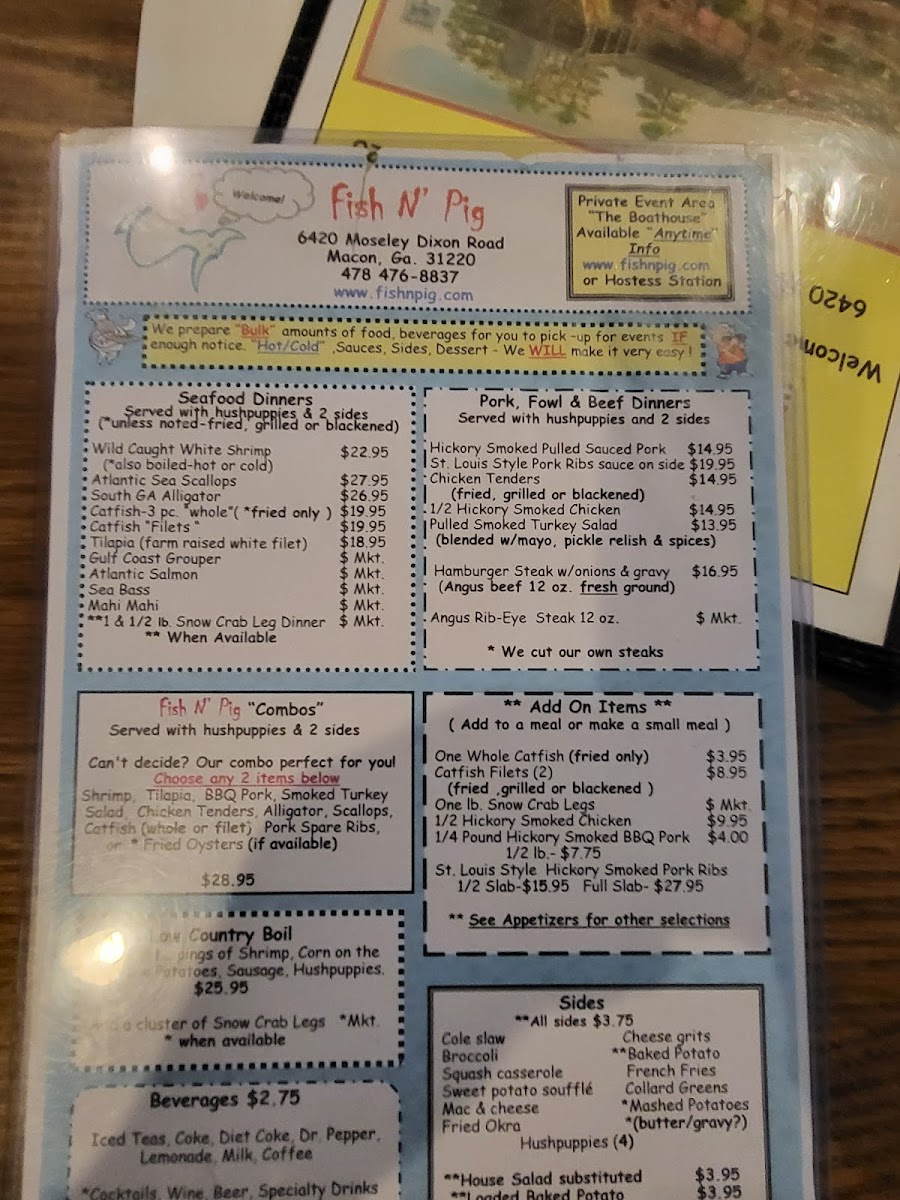 Welcome!
Fish N' Pig
6420 Moseley Dixon Road
Macon, Ga. 31220
478 476-8837
www.fishnpig.com
Private Event Area
"The Boathouse"
Available "Anytime"
Info
www.fishnpig.com
or Hostess Station
6420
Welcom
We prepare "Bulk" amounts of food, beverages for you to pick -up for events IF
enough notice. "Hot/Cold" ,Sauces, Sides, Dessert - We WILL make it very easy !
Seafood Dinners
Served with hushpuppies & 2 sides
(*unless noted-fried, grilled or blackened)
Wild Caught White Shrimp $22.95
(*also boiled-hot or cold)
Atlantic Sea Scallops $27.95
South GA Alligator $26.95
Catfish-3 pc. "whole"( *fried only ) $19.95
Catfish "Filets " $19.95
Tilapia (farm raised white filet) $18.95
Gulf Coast Grouper $ Mkt.
Atlantic Salmon $ Mkt.
Sea Bass $ Mkt.
Mahi Mahi $ Mkt.
**1 & 1/2 lb. Snow Crab Leg Dinner $ Mkt.
** When Available
Pork, Fowl & Beef Dinners
Served with hushpuppies and 2 sides
Hickory Smoked Pulled Sauced Pork $14.95
St. Louis Style Pork Ribs sauce on side $19.95
Chicken Tenders $14.95
(fried, grilled or blackened)
1/2 Hickory Smoked Chicken $14.95
Pulled Smoked Turkey Salad $13.95
(blended w/mayo, pickle relish & spices)
Hamburger Steak w/onions & gravy $16.95
(Angus beef 12 oz. fresh ground)
Angus Rib-Eye Steak 12 oz. $ Mkt.
* We cut our own steaks
Fish N' Pig "Combos"
Served with hushpuppies & 2 sides
Can't decide? Our combo perfect for you!
Choose any 2 items below
Shrimp, Tilapia, BBQ Pork, Smoked Turkey
Salad, Chicken Tenders, Alligator, Scallops,
Catfish (whole or filet) Pork Spare Ribs,
or * Fried Oysters (if available)
$28.95
** Add On Items **
( Add to a meal or make a small meal )
One Whole Catfish (fried only) $3.95
Catfish Filets (2) $8.95
(fried ,grilled or blackened )
One lb. Snow Crab Legs $ Mkt.
1/2 Hickory Smoked Chicken $9.95
1/4 Pound Hickory Smoked BBQ Pork $4.00
1/2 lb.- $7.75
St. Louis Style Hickory Smoked Pork Ribs
1/2 Slab-$15.95 Full Slab- $27.95
** See Appetizers for other selections
Low Country Boil
of Shrimp, Corn on the
Potatoes, Sausage, Hushpuppies.
$25.95
a cluster of Snow Crab Legs *Mkt.
* when available
Beverages $2.75
Iced Teas, Coke, Diet Coke, Dr. Pepper,
Lemonade, Milk, Coffee
*Cocktails, Wine, Beer, Specialty Drinks
Sides
**All sides $3.75
Cole slaw Cheese grits
Broccoli **Baked Potato
Squash casserole French Fries
Sweet potato soufflé Collard Greens
Mac & cheese *Mashed Potatoes
Fried Okra *(butter/gravy?)
Hushpuppies (4)
**House Salad substituted $3.95
**Loaded Baked Potato $3.95